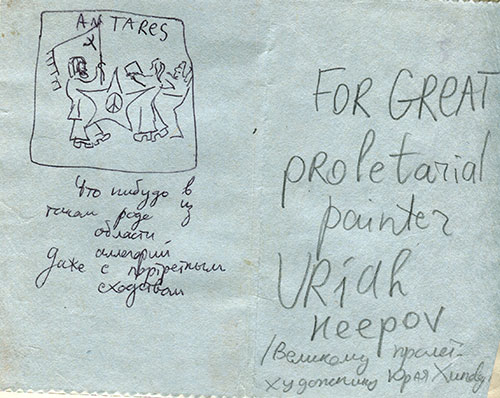 ANTARES
Что нибудь в
таком роде из
области
аллегорий
Даже с портретным
сходством
FOR GREAT
proletarial
painter
URiah
Heepov
/Великому пролет-
художнику Юрая Хипову/